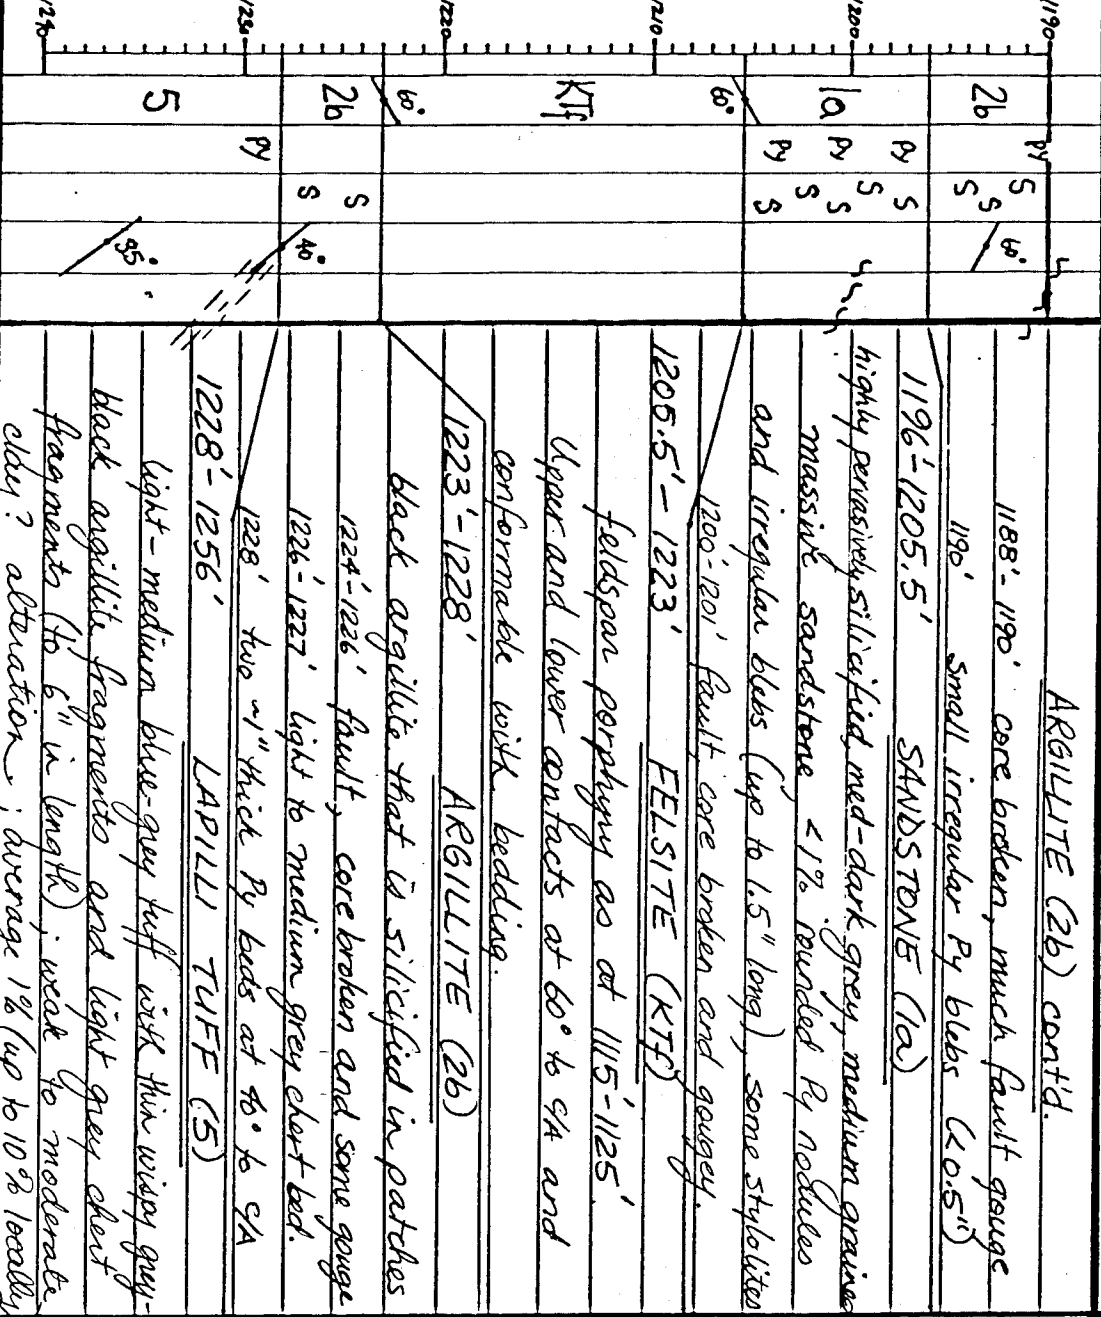 ARGILLITE (2b) cont'd.
1188'-1190' core broken, much fault gouge
1190' small irregular Py blebs (<0.5")
1196'-1205.5' SANDSTONE (1a)
highly pervasively silicified, med-dark grey, medium grained
massive sandstone <1% rounded Py nodules
and irregular blebs (up to 1.5" long), some stylolites
1200'-1201' fault, core broken and gougey.
1205.5'-1223' FELSITE (KTf)
feldspar porphyry as at 1115'-1125'.
Upper and lower contacts at 60° to C/A and
conformable with bedding.
1223'-1228' ARGILLITE (2b)
black argillite that is silicified in patches
1224'-1226' fault, core broken and some gouge
1226'-1227' light to medium grey chert bed.
1228' two ~1" thick Py beds at 40° to C/A
1228'-1256' LAPILLI TUFF (5)
light-medium blue-grey tuff with thin wispy grey-
black argillite fragments and light grey chert
fragments (to 6" in length); weak to moderate
clay? alteration; average 1% (up to 10% locally
1190
1200
1210
1220
1230
1240
2b
1a
60°
KTf
60°
2b
5
Py
Py
Py
Py
Py
S
S
S
S
S
S
S
S
S
S
60°
40°
35°